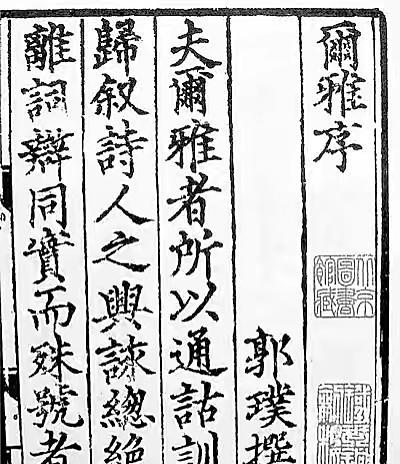 爾雅序
北京圖書館藏
郭璞撰
夫爾雅者所以通詁訓
歸叙詩人之興詠總絶
離詞辯同實而殊號者